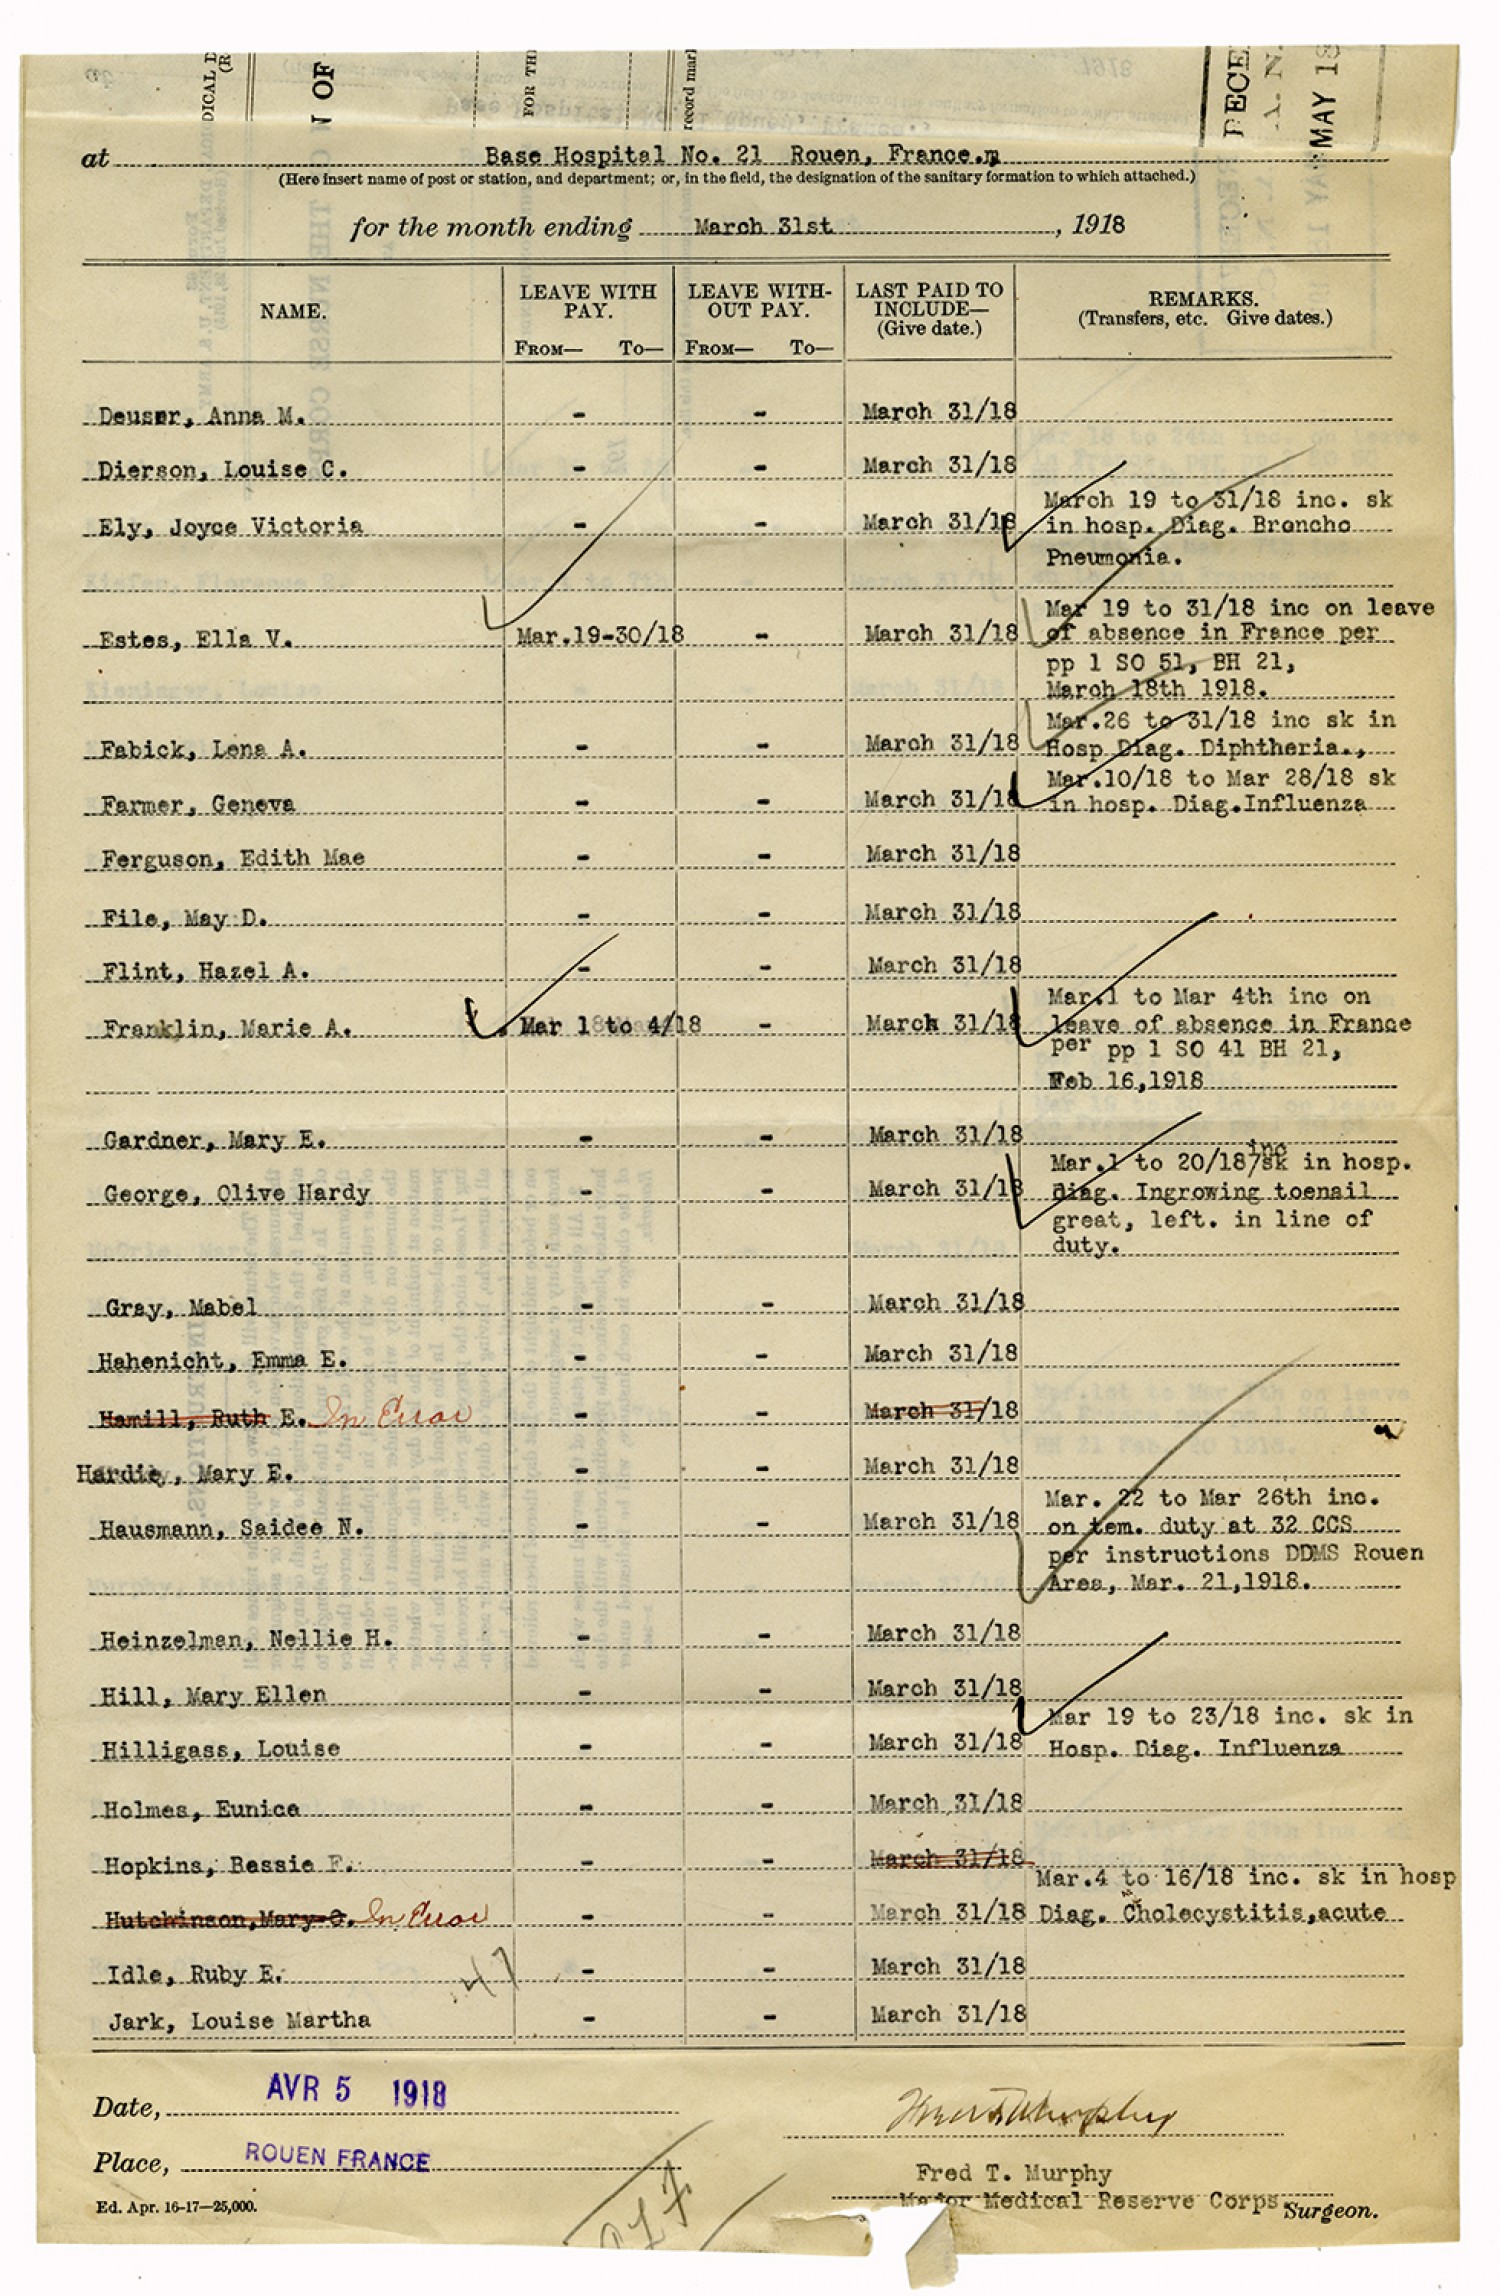 DICAL D
(R
N OF
FOR TH
record mar
DECE
A. N.
MAY 18
at Base Hospital No. 21 Rouen, France.m
(Here insert name of post or station, and department; or, in the field, the designation of the sanitary formation to which attached.)
for the month ending March 31st, 1918
NAME. LEAVE WITH PAY. LEAVE WITH- OUT PAY. LAST PAID TO INCLUDE— (Give date.) REMARKS. (Transfers, etc. Give dates.)
FROM— TO— FROM— TO—
Deuser, Anna M. - - March 31/18
Dierson, Louise C. - - March 31/18
March 19 to 31/18 inc. sk
Ely, Joyce Victoria - - March 31/18 in hosp. Diag. Broncho
Pneumonia.
Mar 19 to 31/18 inc on leave
Estes, Ella V. Mar.19-30/18 - March 31/18 of absence in France per
pp 1 SO 51, BH 21,
March 18th 1918.
Mar.26 to 31/18 inc sk in
Fabick, Lena A. - - March 31/18 Hosp Diag. Diphtheria.,
Mar.10/18 to Mar 28/18 sk
Farmer, Geneva - - March 31/18 in hosp. Diag.Influenza
Ferguson, Edith Mae - - March 31/18
File, May D. - - March 31/18
Flint, Hazel A. - - March 31/18
Mar.1 to Mar 4th inc on
Franklin, Marie A. Mar 1 to 4/18 - March 31/18 leave of absence in France
per pp 1 SO 41 BH 21,
Feb 16,1918
Gardner, Mary E. - - March 31/18
Mar.1 to 20/18/inc sk in hosp.
George, Olive Hardy - - March 31/18 diag. Ingrowing toenail
great, left. in line of
duty.
Gray, Mabel - - March 31/18
Hahenicht, Emma E. - - March 31/18
Hamill, Ruth E. In Error - - March 31/18
Hardie, Mary E. - - March 31/18
Mar. 22 to Mar 26th inc.
Hausmann, Saidee N. - - March 31/18 on tem. duty at 32 CCS
per instructions DDMS Rouen
Area, Mar. 21,1918.
Heinzelman, Nellie H. - - March 31/18
Hill, Mary Ellen - - March 31/18
Mar 19 to 23/18 inc. sk in
Hilligass, Louise - - March 31/18 Hosp. Diag. Influenza
Holmes, Eunice - - March 31/18
Hopkins, Bessie F. March 31/18
Mar.4 to 16/18 inc. sk in hosp
Hutchinson,Mary C. In Error - - March 31/18 Diag. Cholecystitis,acute
Idle, Ruby E. 47 - - March 31/18
Jark, Louise Martha - - March 31/18
Date, AVR 5 1918
Place, ROUEN FRANCE
Fred T Murphy
Fred T. Murphy
Major Medical Reserve Corps. Surgeon.
Ed. Apr. 16-17—25,000.